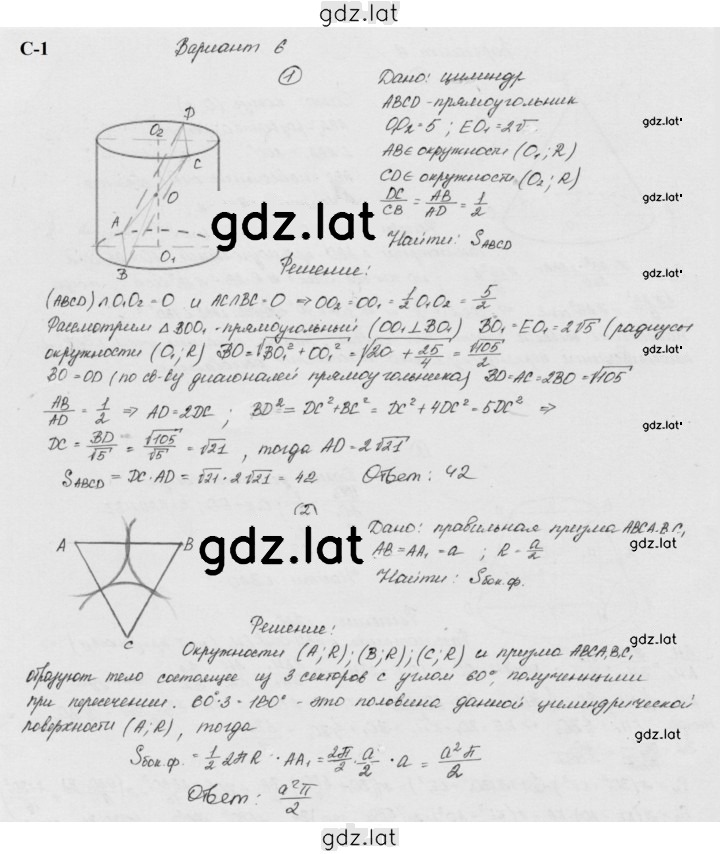 gdz.lat
С-1
Вариант 6
1
Дано: цилиндр
ABCD - прямоугольник
OO₂ = 5 ; EO₁ = 2√
gdz.lat
AB ∈ окружности (O₁; R)
CD ∈ окружности (O₂; R)
DC/CB = AB/AD = 1/2
gdz.lat
Найти: S_ABCD
D
O₂
C
O
A
B
O₁
gdz.lat
Решение:
(ABCD) ∩ O₁O₂ = O и AC∩BC = O ⇒ OO₂ = OO₁ = 1/2 O₁O₂ = 5/2
gdz.lat
Рассмотрим △BOO₁ - прямоугольный (OO₁ ⊥ BO₁) BO₁ = EO₁ = 2√5 (радиусы
окружности (O₁; R) BO = √BO₁² + OO₁² = √20 + 25/4 = √105/2
gdz.lat
BO = OD (по св-ву диагоналей прямоугольника) BD = AC = 2BO = √105
AB/AD = 1/2 ⇒ AD = 2DC ; BD² = DC² + BC² = DC² + 4DC² = 5DC² ⇒
gdz.lat
DC = BD/√5 = √105/√5 = √21 , тогда AD = 2√21
S_ABCD = DC · AD = √21 · 2√21 = 42 Ответ: 42
gdz.lat
(2)
Дано: правильная призма ABCA₁B₁C₁
AB = AA₁ = a ; R = a/2
gdz.lat
Найти: Sбок.ф.
A
B
C
gdz.lat
Решение:
gdz.lat
Окружности (A; R); (B; R); (C; R) и призма ABCA₁B₁C₁
образуют тело состоящее из 3 секторов с углом 60°, полученными
gdz.lat
при пересечении. 60°·3 = 180° - это половина данной цилиндрической
поверхности (A; R), тогда
gdz.lat
Sбок.ф. = 1/2 2πR · AA₁ = 2π/2 · a/2 · a = a²π/2
gdz.lat
Ответ: a²π/2
gdz.lat
gdz.lat